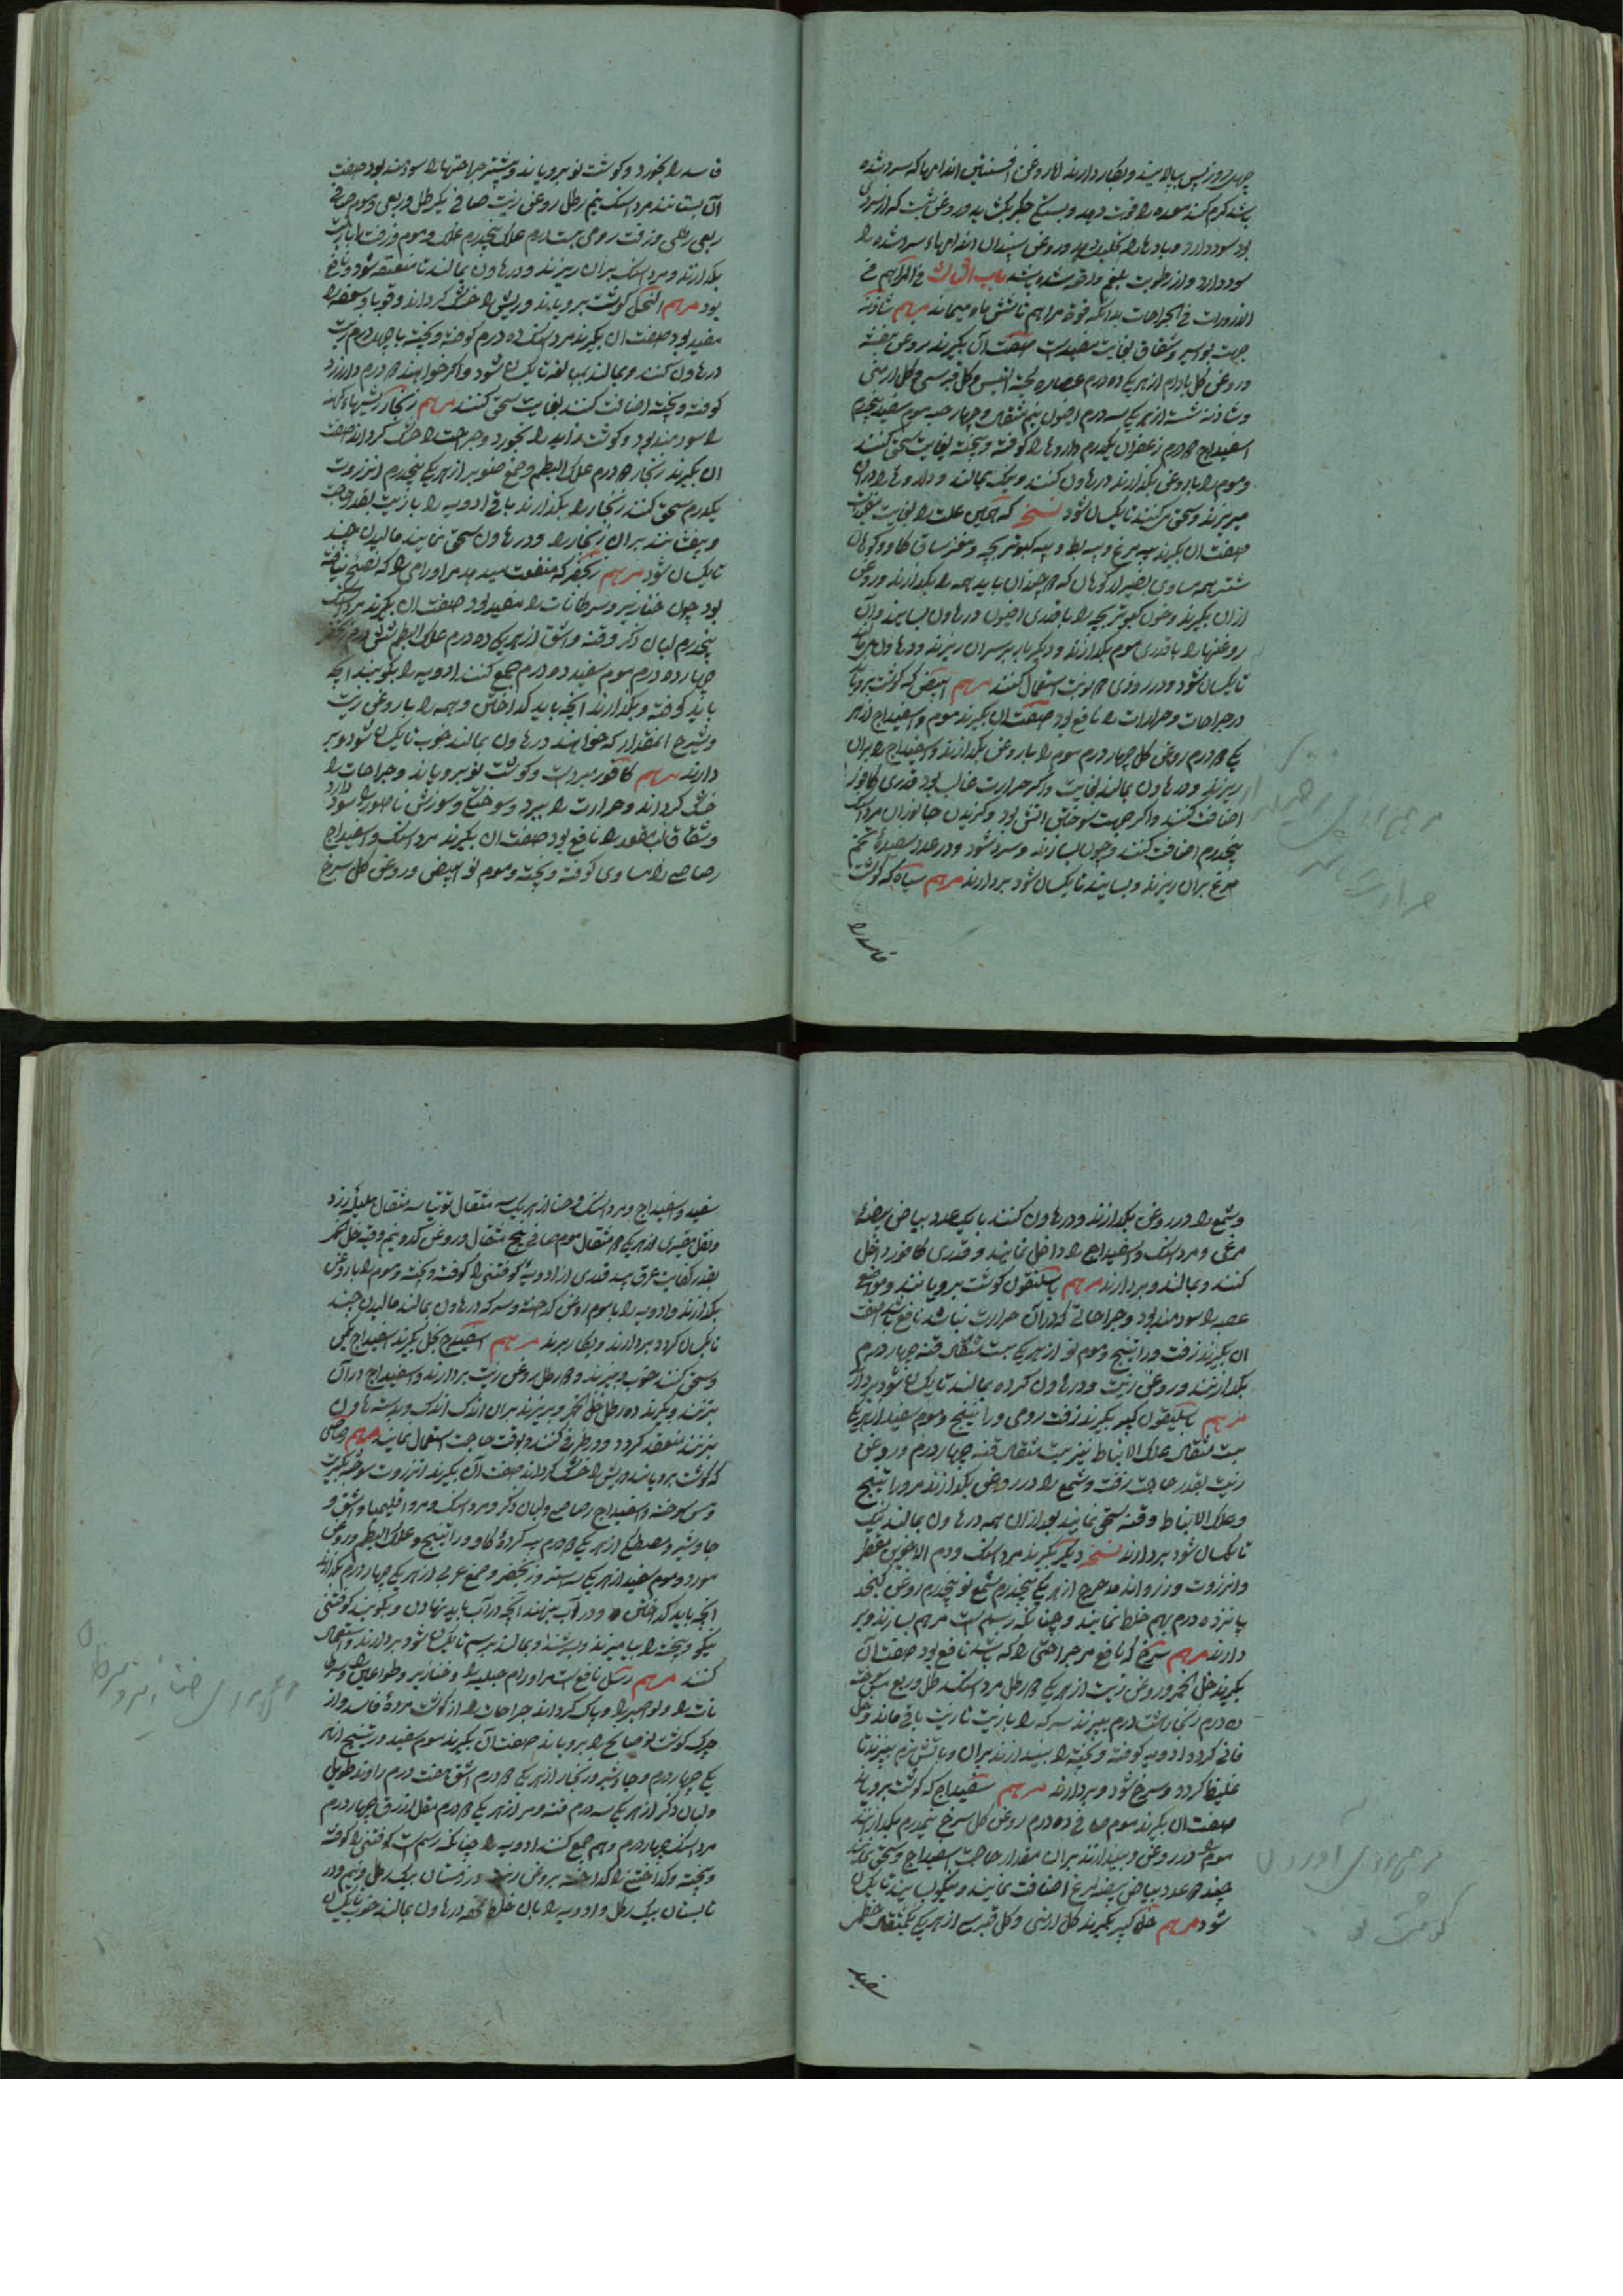 چهل روز پس بپالایند و بکار دارند اما روغن افسنتین اندامها که سرد شده
باشد گرم کند معده را قوت دهد و بستگی جگر بگشاید و روغن شبت که از سردی
بود سود دارد و بادها را تحلیل دهد و روغن سپندان اندامهاء سرد شده را
سود دارد و از رطوبت بلغم واقع شده باشد باب الثالث فی المراهم فی
الذرورات فی الجراحات بدانکه قوة مراهم تا شش ماه میماند مرهم شادنه
جهت بواسیر و شقاق بغایت مفیدست صفت آن بگیرند روغن بنفشه
و روغن گل بادام از هر یکی ده درم عصاره لحیة التیس و گل قبرسی و گل ارمنی
و شادنه شسته از هر یکی سه درم افیون نیم مثقال و چهار حبه موم سفید پنجدرم
اسفیداج درم زعفران یکدرم داروها را کوفته و پیخته بغایت سحق کنند
و موم را با روغن بگدازند در هاون کنند و نیک بمالند و داروها را در آن
میریزند و سحق میکنند تا یکسان شود نسخه که همین علت را بغایت مفیدست
صفت آن بگیرند پیه مرغ و پیه بط و پیه کبوتر بچه و مغز ساق گاو و کوهان
شتر همه مساوی بغیر از کوهان که چندان باید همه را بگدازند و روغن
ازان بگیرند و خون کبوتر بچه را با قدری افیون در هاون بسایند و آن
روغنها را با قدری موم بگدازند و دیگر بار بر سر آن ریزند و در هاون بمالند
تا یکسان شود و در روزی نوبت استعمال کنند مرهم ابیض که گوشت برویاند
در جراحات و حرارات را نافع بود صفت آن بگیرند موم و اسفیداج از هر
یکی درم روغن گل چهار درم موم را با روغن بگدازند و اسفیداج را بران
ریزند و در هاون بمالند بغایت و اگر حرارت غالب بود قدری کافور
اضافت کنند و اگر جهت سوختن آتش بود و گزیدن جانوران مرداسنگ
پنجدرم اضافت کنند و چون بسازند و سرد شود دو عدد سفیدهٔ تخم
مرغ بران ریزند و بسایند تا یکسان شود بردارند مرهم سیاه که گوشت
فاسد را
فاسد را بخورد و گوشت نو برویاند و بیشتر جراحتها را سودمند بود صفت
آن بستانند مرداسنگ نیم رطل روغن زیت صافی یکرطل و ربعی و موم صافی
ربعی رطلی و زفت رومی بیست درم علک پنجدرم علک و موم و زفت را با زیت
بگدازند و مرداسنگ بران ریزند و در هاون بمالند تا منعقد شود و نافع
بود مرهم النخل گوشت برویاند و ریش را خشک گرداند و قوبا و سعفه را
مفید بود صفت آن بگیرند مرداسنگ ده درم کوفته و پیخته با چهل درم زیت
در هاون کنند و بمالند بمبالغه تا یکسان شود و اگر خواهند درم دارزرد
کوفته و پیخته اضافت کنند بغایت سحق کنند مرهم زنگار ریشهاء کهنه
را سودمند بود و گوشت زاید را بخورد و جراحت را خشک گرداند صفت
آن بگیرند زنگار درم علک البطم و صمغ صنوبر از هر یکی پنجدرم انزروت
یکدرم سحق کنند زنگار را بگدازند باقی ادویه را با زیت بقدر حاجت
و بیفشانند بران زنگار را و در هاون سحق نمایند مالیدن چند
تا یکسان شود مرهم زنجفر که منفعت میدهد مر اورامی را که نضج نیافته
بود چون خنازیر و سرطانات را مفید بود صفت آن بگیرند مرداسنگ
پنجدرم لبان ذکر و قنه و اشق از هر یکی ده درم علک البطم شش درم زنجفر
چهارده درم موم سفید ده درم جمع کنند ادویه را بکوبند آنچه
باید کوفته و بگدازند آنچه باید گداختن و همه را با روغن زیت
و شیرج آنمقدار که خواهند در هاون بمالند خوب تا یکسان شود و بر
دارند مرهم کافور سردست و گوشت نو برویاند و جراحات را
خشک گرداند و حرارت را ببرد و سوختگی و سوزش ناصور را سود دارد
و شقاق المقعد را نافع بود صفت آن بگیرند مرداسنگ و اسفیداج
رصاص را مساوی کوفته و پیخته و موم نو ابیض و روغن گل سرخ
و شمع را در روغن بگدازند و در هاون کنند با یکعدد بیاض بیضهٔ
مرغی و مرداسنگ و اسفیداج را داخل نمایند و قدری کافور داخل
کنند و بمالند و بردارند مرهم باسلیقون گوشت برویانند و مواضع
عصب را سودمند بود و جراحاتی که در آن حرارت نباشد نافع باشد صفت
آن بگیرند زفت و راتینج و موم نو از هر یکی بیست مثقال قنه چهار درم
بگدازند و روغن زیت و در هاون کرده بمالند تا یکسان شود بردارند
مرهم باسلیقون کبیر بگیرند زفت رومی و راتینج و موم سفید از هر یکی
بیست مثقال علک الانباط نیز بیست مثقال قنه چهار درم و روغن
زیت بقدر حاجت زفت و شمع را در روغن بگدازند و راتینج
و علک الانباط و قنه سحق نمایند بعد از آن همه در هاون بمالند نیک
تا یکسان شود بردارند نسخه دیگر بگیرند مرداسنگ و دم الاخوین مقطر
و انزروت و زراوند مدحرج از هر یکی پنجدرم شمع نو پنجدرم روغن کنجد
پانزده درم بهم خلط نمایند و چنانکه رسم است مرهم بسازند و بر
دارند مرهم سرخ که نافع مر جراحتی را که باشد نافع بود صفت آن
بگیرند خل الخمر و روغن زیت از هر یکی رطل مرداسنگ رطل و ربع مس سوخته
ده درم زنگار هشت درم بپزند سرکه را با زیت تا زیت باقی ماند و خل
فانی گردد ادویه کوفته و پیخته را بیندازند بران و باتش نرم بپزند تا
غلیظ گردد و سرخ شود و بردارند مرهم سفیداج که گوشت برویاند
صفت آن بگیرند موم صافی ده درم روغن گل سرخ نیمدرم بگدازند
موم را در روغن و بیندازند بران مقدار حاجت اسفیداج و سحق نمایند
چند عدد بیاض بیضه مرغ اضافت نمایند و نیکو بسایند تا یکسان
شود مرهم خل کبیر بگیرند گل ارمنی و گل قبرسی از هر یکی یکمثقال خطمی
سفید
سفید و اسفیداج و مرداسنگ و حنا از هر یکی سه مثقال توتیا سه مثقال هلیلهٔ زرد
و نقل عنبری از هر یکی مثقال موم صافی پنج مثقال و روغن کدو نیم وقیه خل خمر
بقدر کفایت عرق بید قدری از ادویهٔ کوفتنی را کوفته و پیخته و موم را با روغن
بگدازند و ادویه را با موم روغن گداخته و سرکه در هاون بمالند مالیدن چند
تا یکسان گردد بردارند و بکار برند مرهم اسفیداج بخل بگیرند اسفیداج یکمن
و سحق کنند خوب و بپزند و رطل روغن زیت بردارند و اسفیداج در آن
بزنند و بگیرند ده رطل خل الخمر و بریزند بران اندک اندک و بدسته هاون
بزنند تا منعقد گردد و در ظرفی کنند و بوقت حاجت استعمال نمایند مرهم رصاص
که گوشت برویاند و ریش را خشک گرداند صفت آن بگیرند انزروت سوخته کبریت
و مس سوخته و اسفیداج رصاص و لبان ذکر و مرداسنگ و مر و اقلیمیا و اشق و
جاوشیر و مصطکی از هر یکی درم پیه گردهٔ گاو و راتینج و علک البطم و روغن
مورد و موم سفید از هر یکی سه استر و زنجفر و صمغ عربی از هر یکی چهار درم بگدازند
آنچه باید گداختن و در آب نهند آنچه در آب باید نهادن و بکوبند کوفتنی
نیکو و پیخته را بیامیزند و بسرشند و بمالند برسم تا یکسان شود بردارند و استعمال
کنند مرهم رسل نافع است مر اورام جبلیه را و خنازیر و طواعین و سرطا
نات را و نواصیر را و پاک گرداند جراحات را از گوشت مردهٔ فاسد و از
چرک گوشت نو صالح را برویاند صفت آن بگیرند موم سفید و رتینج از هر
یکی چهار درم و جاوشیر و زنگار از هر یکی درم اشق هفت درم زراوند طویل
و لبان ذکر از هر یکی سه درم قنه و مر از هر یکی درم مقل ازرق چهار درم
مرداسنگ چهار درم و هم جمع کنند ادویه را چنانکه رسم است کوفتنی را کوفته
و پیخته و گداختنی را گداخته بروغن زیت در زمستان بیک رطل و نیم و در
تابستان بیک رطل و ادویه را بان خلط کرده در هاون بمالند خوب تا یکسان